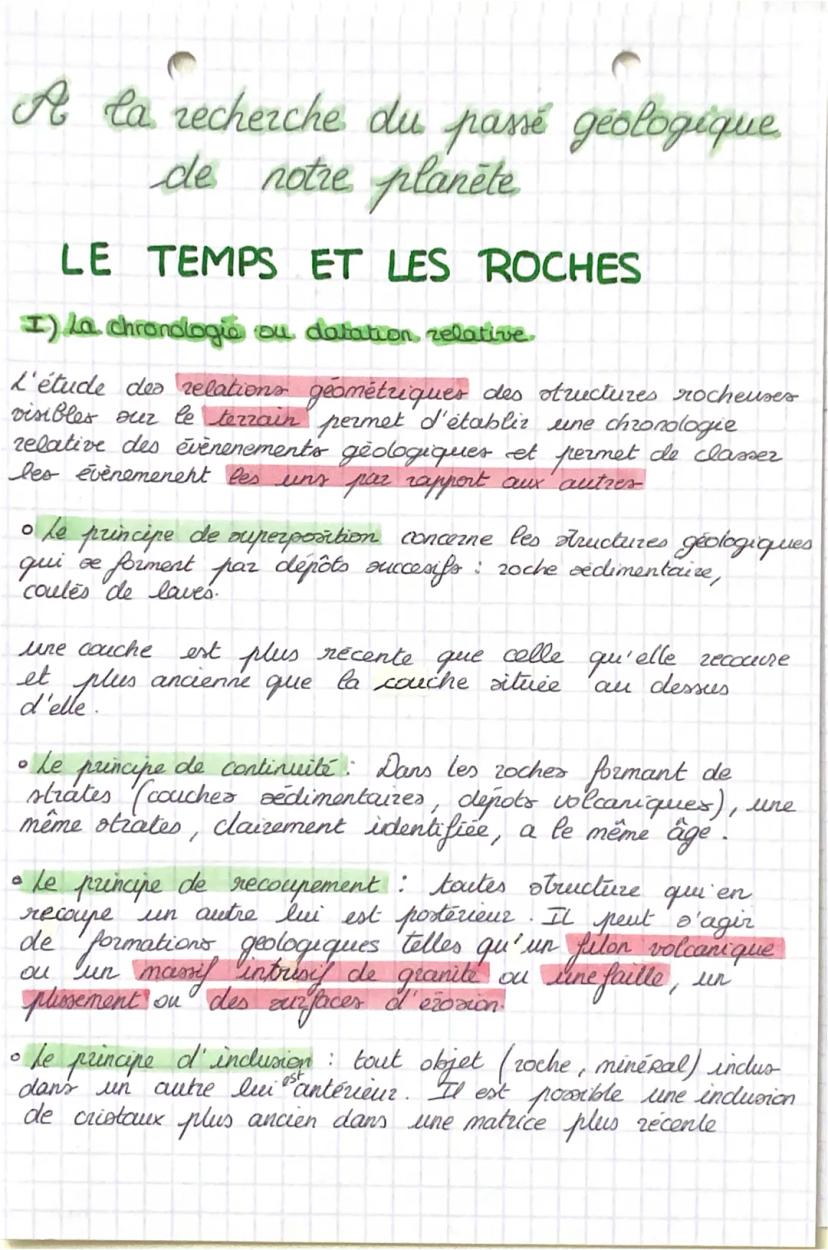 A la recherche du passé géologique
de notre planète
LE TEMPS ET LES ROCHES
I) La chronologie ou datation relative
L'étude des relations géométriques des structures rocheuses
visibles sur le terrain permet d'établir une chronologie
relative des évènenements géologiques et permet de classer
les évènemenent les uns par rapport aux autres
• Le principe de superposition concerne les structures géologiques
qui se forment par dépôts succesifs : roche sédimentaire,
coulés de laves.
une couche est plus récente que celle qu'elle recouvre
et plus ancienne que la couche située au dessus
d'elle.
• Le principe de continuité : Dans les roches formant de
strates (couches sédimentaires, dépots volcaniques), une
même strates, clairement identifiée, a le même âge.
• Le principe de recoupement : toutes structure qui en
recoupe un autre lui est postérieur. Il peut s'agir
de formations geologiques telles qu'un filon volcanique
ou un massif intrusif de granite ou une faille, un
plissement ou des surfaces d'érosion.
• Le principe d'inclusion : tout objet (roche, minéral) inclus
dans un autre lui est antérieur. Il est possible une inclusion
de cristaux plus ancien dans une matrice plus récente